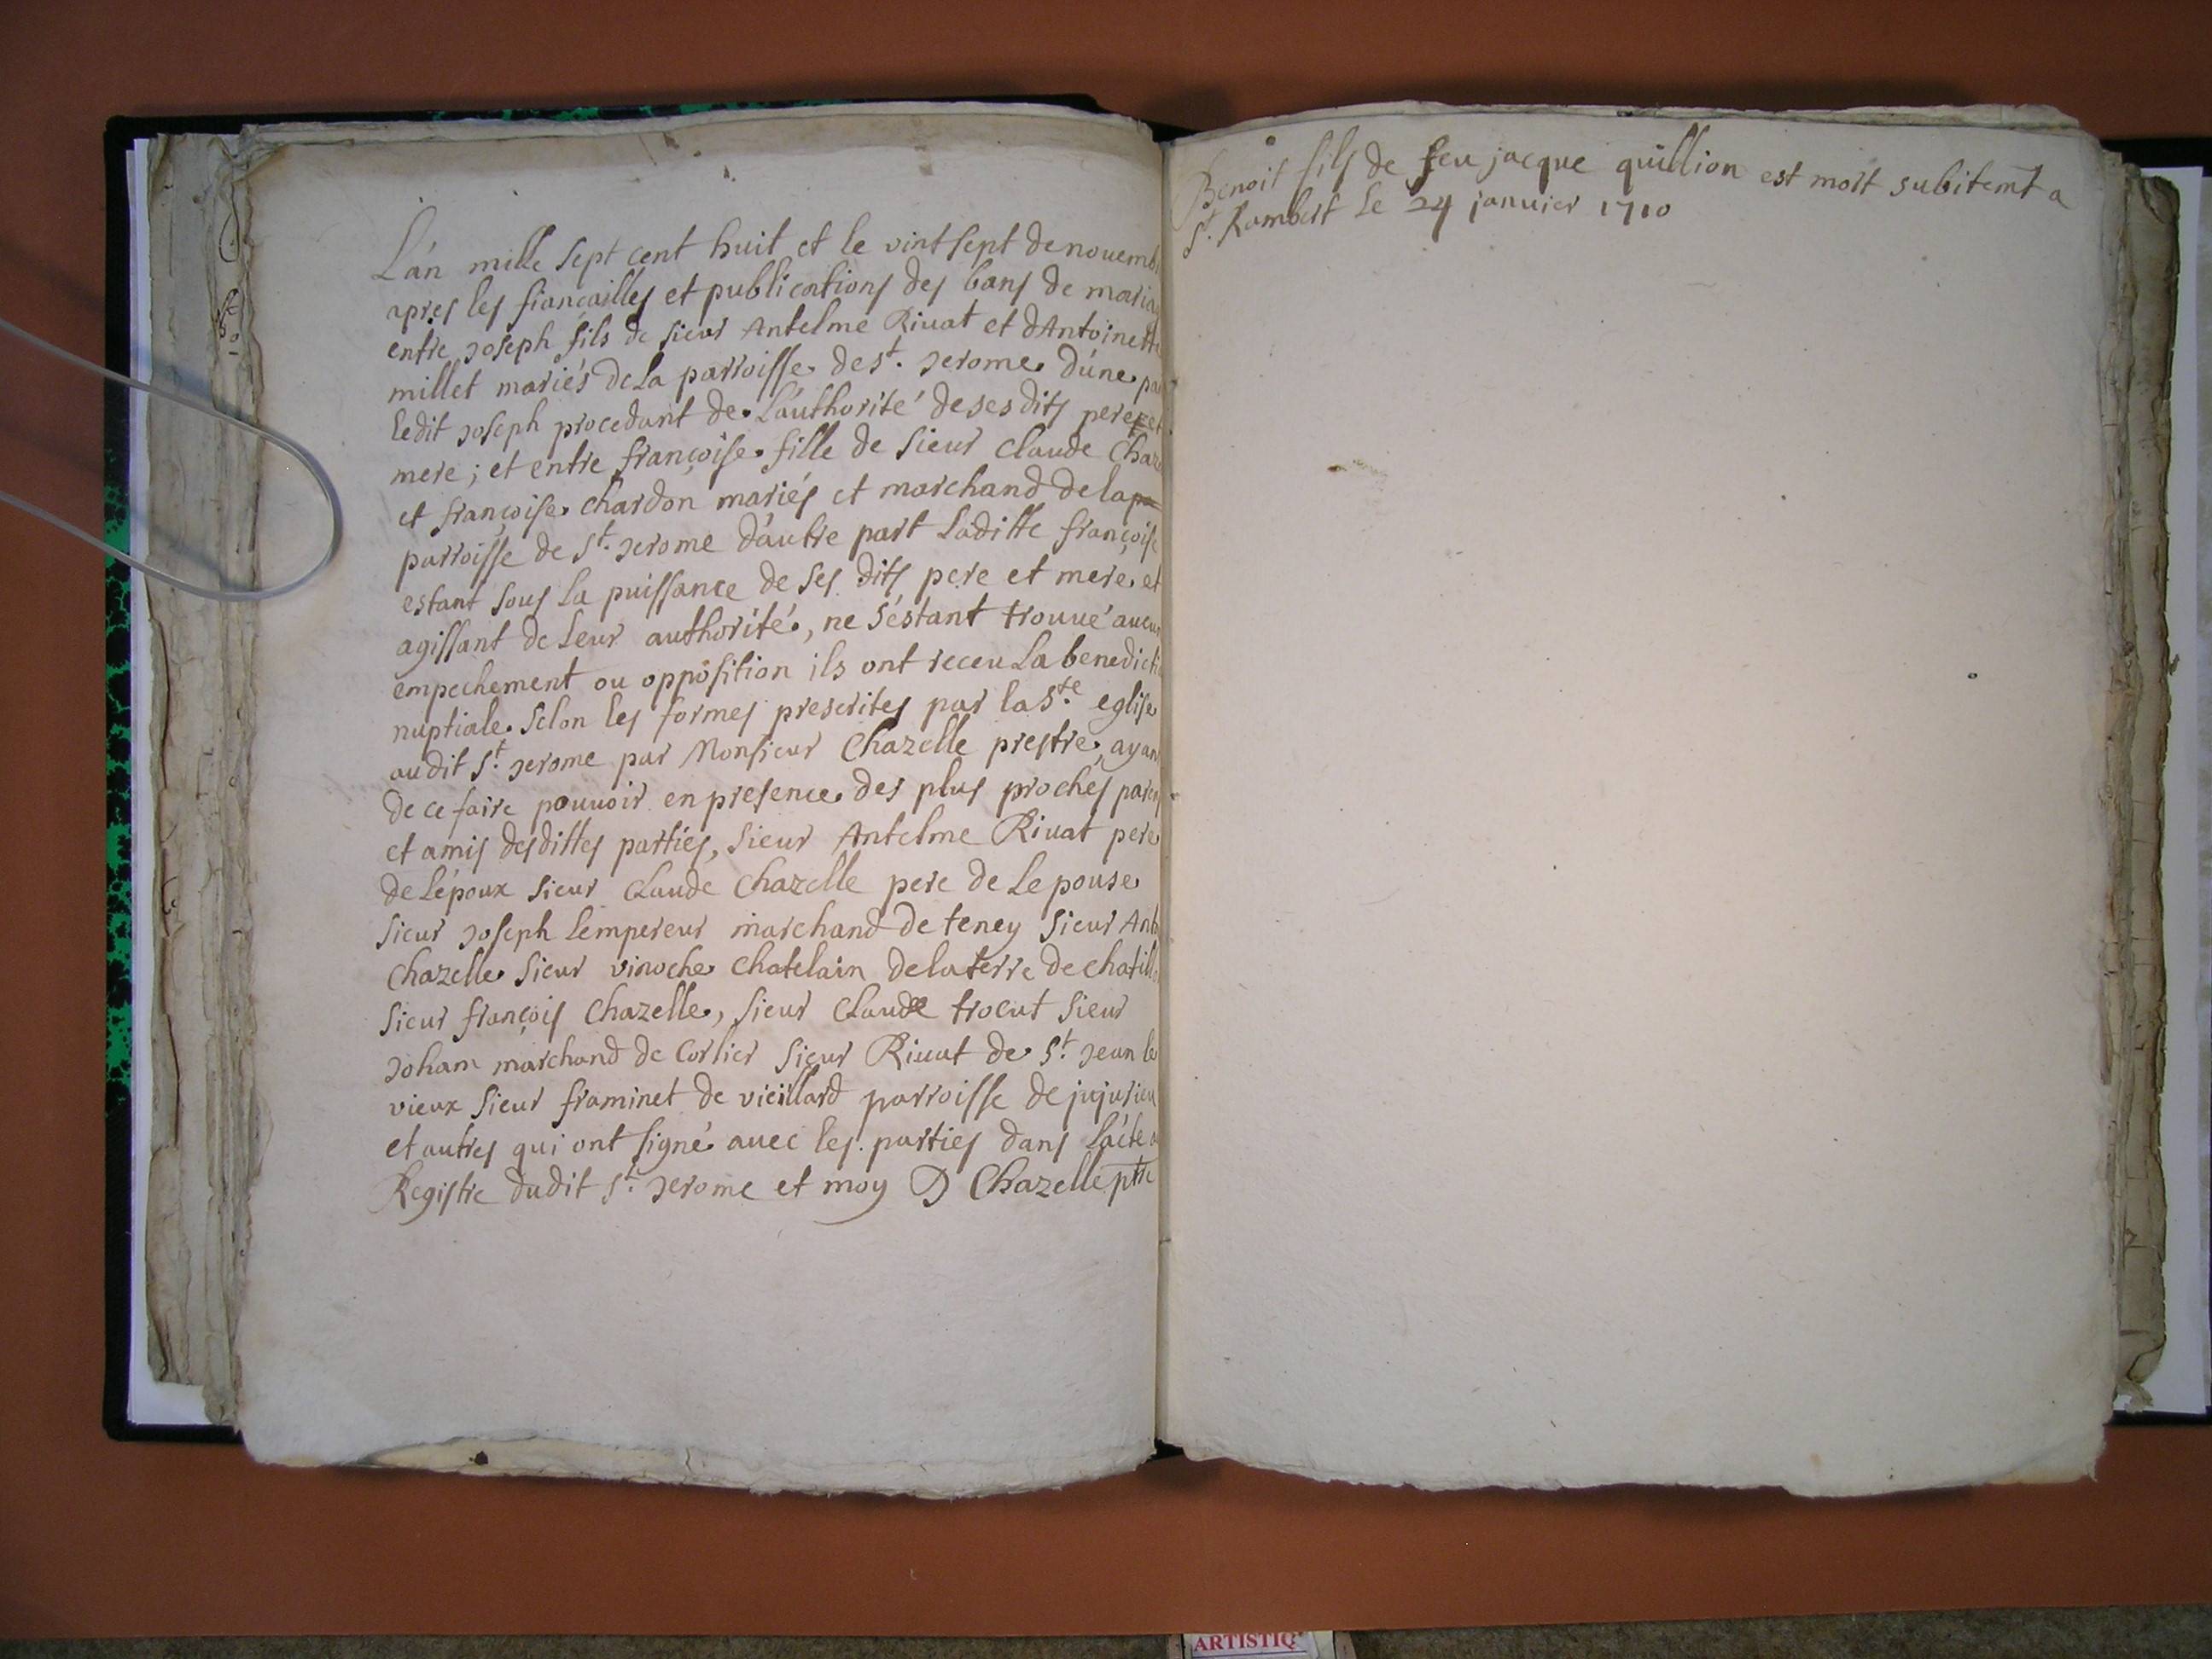 L'an mille sept cent huit et le vint sept de nouemb
apres les fiançailles et publications des bans de maria
entre Joseph fils de sieur Antelme Riuat et d'Antoinette
millet mariés de la parroisse de St. Jerome d'une pa
ledit Joseph procedant de l'authorité de ses dits pere et
mere ; et entre françoise fille de sieur Claude Chaz
et françoise chardon mariés et marchand de la
parroisse de St. Jerome d'autre part laditte françoise
estant sous la puissance de ses dits pere et mere et
agissant de leur authorité, ne s'estant trouué aucun
empechement ou opposition ils ont receu la benedicti
nuptiale selon les formes prescrites par la Ste. eglise
audit St. Jerome par Monsieur Chazelle prestre, ayan
de ce faire pouuoir en presence des plus proches paren
et amis desdittes parties, sieur Antelme Riuat pere
de l'époux sieur Claude Chazelle pere de Lepouse
sieur Joseph Lempereur marchand de teney sieur Ant
Chazelle sieur vinoche chatelain de la terre de chatill
sieur françois Chazelle, sieur Claude trocut sieur
Joham marchand de Corlier sieur Riuat de St. Jean le
vieux sieur framinet de vieillard parroisse de jujurieu
et autres qui ont signé auec les parties dans l'acte a
Registre dudit St. Jerome et moy D Chazelle ptre
Benoit fils de feu jacque quillion est mort subitemt a
St. Rambert le 24 januier 1710
ARTISTIQ